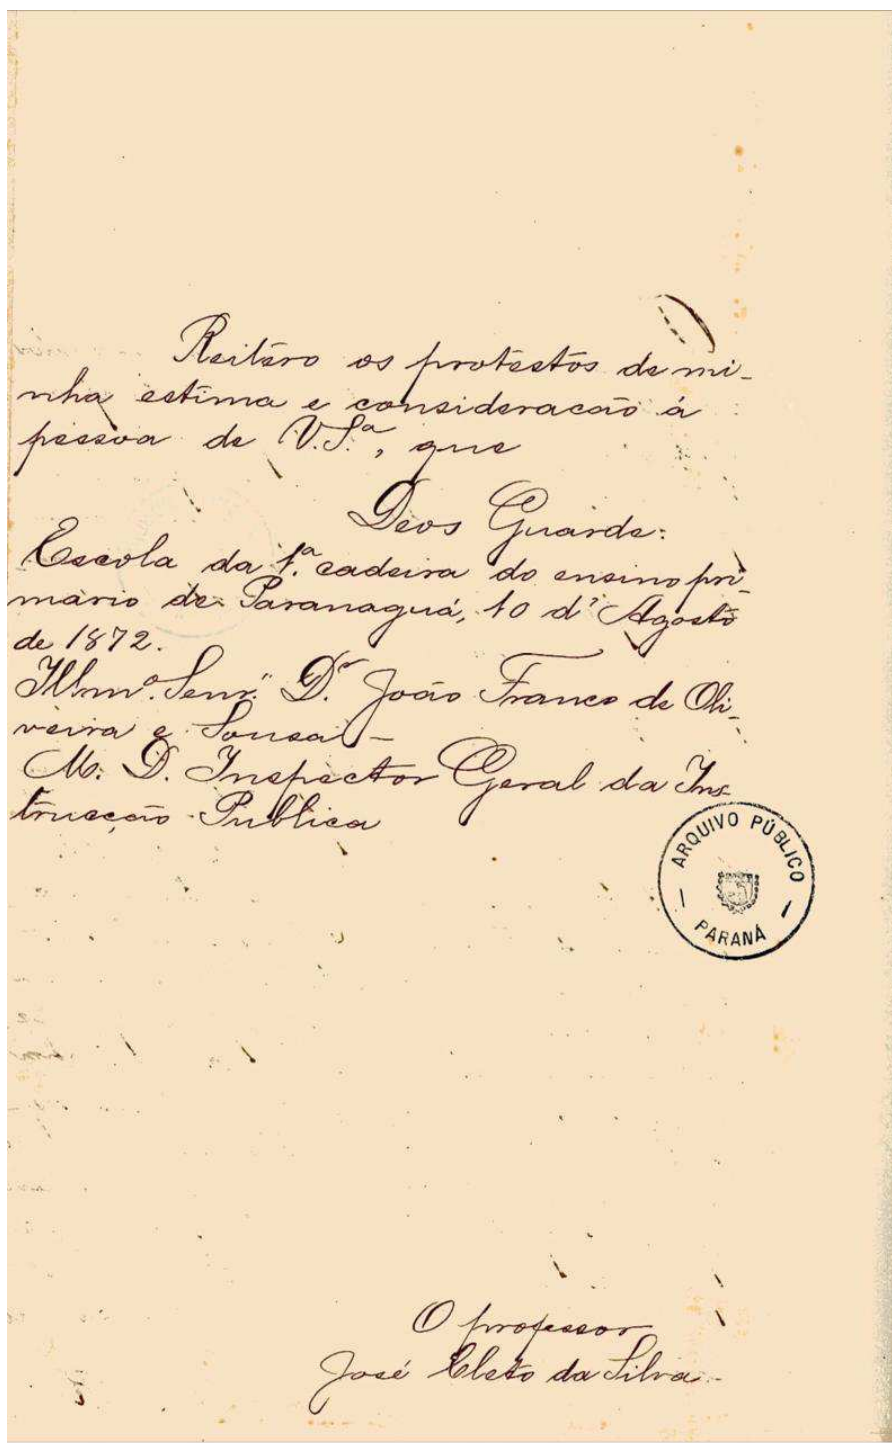 Reitéro os protestos de mi-
nha estima e consideracão á
pessoa de V. S.ª, que
Deos Guarde.
Escola da 1.ª cadeira do ensino pri-
mario de Paranaguá, 10 d' Agosto
de 1872.
Illmº. Senr.' Dr João Franco de Oli-
veira e Sousa -
M. D. Inspector Geral da Ins-
trucção Publica
ARQUIVO PÚBLICO
PARANÁ
O professor
José Cleto da Silva -